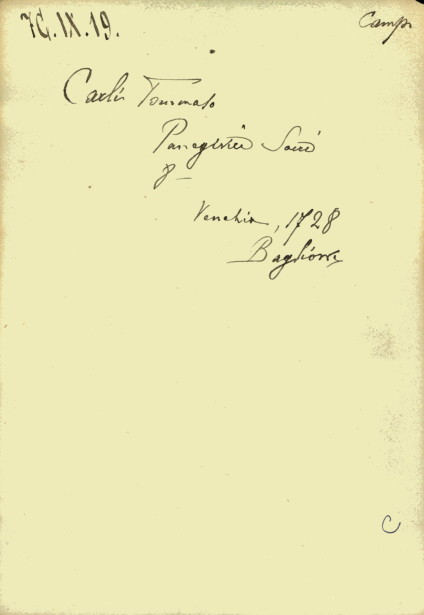 7G.IX.19.
Camp.
Carli Tommaso
Panegirici Sacri
8—
Venezia, 1728
Baglioni
C